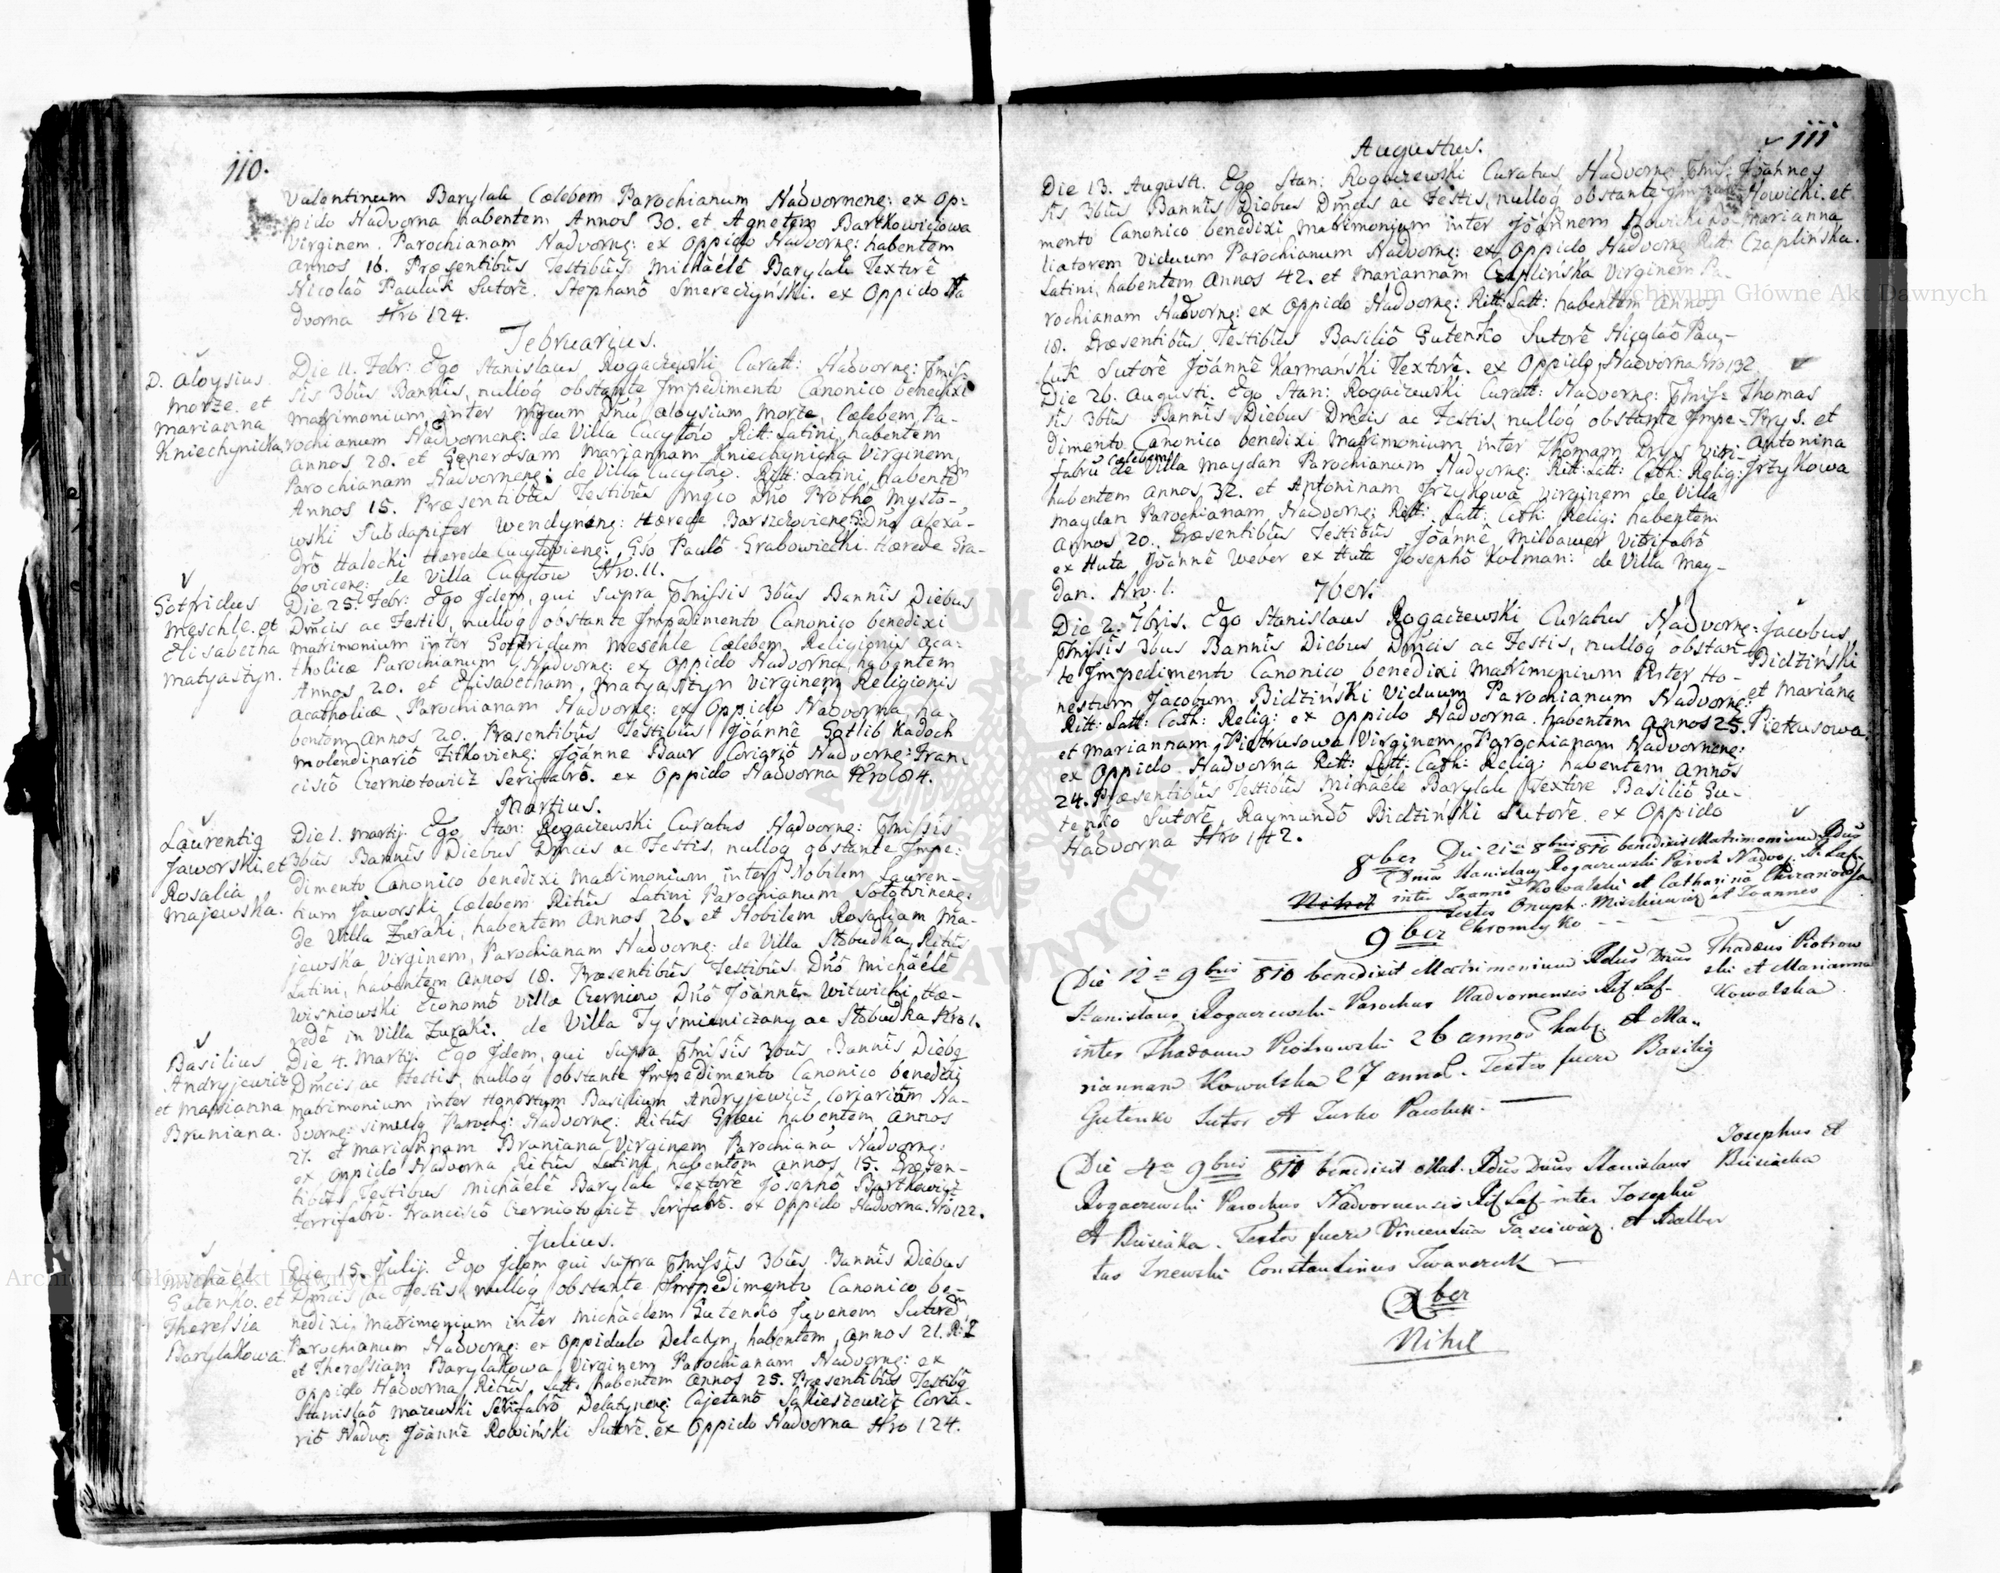 110.
Valentinum Barylak Cœlebem Parochianum Nadvornene: ex Op=
pido Nadvorna habentem Annos 30. et Agnetem Bartkowiczowa
Virginem Parochianam Nadvorne: ex Oppido Nadvorne: habentem
Annos 16. Præsentibus Testibus Michäele Barylak Textore
Nicolao Pauluk Sutore. Stephano Smereczyński. ex Oppido Na
dvorna Nro 124.
Februarius.
D. Aloysius
Morze. et
Marianna
Kniechynicka
Die 11. Febr: Ego Stanislaus Rogaczewski Curatt: Nadvorne: Pmis=
sis 3bus Bannis, nulloq obstante Impedimento Canonico benedixi
matrimonium inter Mgcum Dnu Aloysium Morze, Cœlebem, Pa-
rochianum Nadvornene: de Villa Cucyłow Ritt: Latini, habentem
Annos 28. et Generosam Mariannam Kniechynicka Virginem
Parochianam Nadvornene: de Villa Cucyłow. Ritt: Latini habente
Annos 15. Præsentibus Testibus Mgco Dno Protho Mysło-
wski Subdapifer Wendynene: Hærede Barszczoviene: Dno Alexa-
dro Halecki Hærede Cucyłoviene: Gso Paulo Grabowiecki Hærede Gra-
bovicene: de Villa Cucyłow Nro. 11.
Gotfridus
Meschle. et
Elisabetha
Matyasztyn.
Die 25. Febr: Ego Idem, qui supra Pmissis 3bus Bannis Diebus
Dmcis ac Festis, nulloq obstante Impedimento Canonico benedixi
matrimonium inter Gotfridum Meschle Cœlebem Religionis Aca-
tholicæ Parochianum Nadvorne: ex Oppido Nadvorna habentem
Annos 20. et Elisabetham Matyasztyn Virginem Religionis
Acatholicæ, Parochianam Nadvorne: ex Oppido Nadvorna ha-
bentem Annos 20. Præsentibus Testibus Jöanne Gotlib Kadoch
molendinario Zitkoviene: Jöanne Baur Coriario Nadvorne: Fran-
cisco Czerniotowicz Serifabro. ex Oppido Nadvorna Nro 84.
Martius.
Laurentig
Jaworski. et
Rosalia
Majewska.
Die 1. Martij. Ego Stan: Rogaczewski Curatus Nadvorne: Pmissis
3bus Bannis Diebus Dmcis ac Festis, nulloq obstante Impe=
dimento Canonico benedixi Matrimonium inter Nobilem Lauren-
tium Jaworski Cœlebem Ritus Latini Parochianum Sołotvinene:
de Villa Żuraki, habentem Annos 26. et Nobilem Rosaliam Ma-
jewska Virginem, Parochianam Nadvorne: de Villa Słobudka, Ritus
Latini, habentem Annos 18. Præsentibus Testibus Dno Michäele
Wiśniowski Œconomo Villæ Czerniow Dno Jöanne Witwicki Hæ-
rede in Villa Żuraki. de Villa Tyśmieniczany ac Słobudka Nro 1.
Basilius
Andryjewicz
et Marianna
Bruniana.
Die 4. Martij. Ego Idem, qui supra Pmissis 3bus Bannis Diebg
Dmcis ac Festis, nulloq obstante Impedimento Canonico benedixi
matrimonium inter Honortum Basilium Andryjewicz Coriarium Na-
dvorne: simulq Paroch: Nadvorne: Ritus Græci habentem Annos
27. et Mariannam Bruniana Virginem Parochiana Nadvorne:
ex Oppido Nadvorna Ritus Latini, habentem Annos 15. Præsen-
tibus Testibus Michäele Barylak Textore Josepho Bartkowicz
Ferrifabro. Francisco Czerniotowicz Serifabro. ex Oppido Nadvorna. Nro 122.
Julius.
Michäel
Gutenko. et
Theressia
Barylakowa.
Die 15. Julij. Ego Idem qui supra Pmissis 3bus Bannis Diebus
Dmcis ac Festis, nulloq obstante Impedimento Canonico be-
nedixi Matrimonium inter Michäelem Gutenko Juvenem Sutore
Parochianum Nadvorne: ex Oppidulo Delatyn, habentem Annos 21. R: L
et Theressiam Barylakowa Virginem Parochianam Nadvorne: ex
Oppido Nadvorna, Ritus Latt: habentem Annos 25. Præsentibus Testibg
Stanislao Mazewski Serifabro Delatynene: Cajetano Sakieszewicz Coria-
rio Nadve: Jöanne Rowiński Sutore. ex Oppido Nadvorna Nro 124.
111
Augustus.
Die 13. Augusti. Ego Stan: Rogaczewski Curatus Nadvorne Pmis-
sis 3bus Bannis Diebus Dmcis ac Festis, nulloq obstante Impedi-
mento Canonico benedixi Matrimonium inter Jöannem Nowicki
liatorem Viduum Parochianum Nadvorne: ex Oppido Nadvorne Ritt:
Latini, habentem Annos 42. et Mariannam Czaplińska Virginem Pa-
rochianam Nadvorne: ex Oppido Nadvorne: Ritt: Latt: habentem Annos
18. Præsentibus Testibus Basilio Gutenko Sutore Nicolao Pau-
luk Sutore Jöanne Karmański Textore. ex Oppido Nadvorna Nro 132.
Jöannes
Nowicki. et
Marianna
Czaplińska.
Die 26. Augusti. Ego Stan: Rogaczewski Curatt: Nadvorne: Pmis=
sis 3bus Bannis Diebus Dmcis ac Festis, nulloq obstante Impe-
dimento Canonico benedixi Matrimonium inter Thomam Krys Vitri-
fabru Cœlebem de Villa Maydan Parochianum Nadvorne: Ritt: Latt: Cath: Relig:
habentem Annos 32. et Antoninam Jrzykowa Virginem de Villa
Maydan Parochianam Nadvorne: Ritt: Latt: Cath: Relig: habentem
Annos 20. Præsentibus Testibus Jöanne Milbawer Vitrifabro
ex Huta Jöanne Weber ex Huta Josepho Kolman: de Villa May-
dan. Nro. 1.
Thomas
Krys. et
Antonina
Jrzykowa
7ber.
Die 2. 7bris. Ego Stanislaus Rogaczewski Curatus Nadvorne:
Pmissis 3bus Bannis Diebus Dmcis ac Festis, nulloq obstan-
te Impedimento Canonico benedixi Matrimonium inter Ho-
nestum Jacobum Bidziński Viduum Parochianum Nadvorne:
Ritt: Latt: Cath: Relig: ex Oppido Nadvorna habentem Annos 25.
et Mariannam Pietrusowa Virginem Parochianam Nadvornene:
ex Oppido Nadvorna Ritt: Latt: Cath: Relig: habentem Annos
24. Præsentibus Testibus Michäele Barylak Textore Basilio Gu-
tenko Sutore, Raymundo Bidziński Sutore. ex Oppido
Nadvorna Nro 142.
Jacobus
Bidziński
et Mariana
Pietrusowa.
8ber Die 21a 8bris 810 benedixit Matrimonium Rdus
Dnus Stanislaus Rogaczewski Paroch Nadvor: Rt Lat-
Nihil inter Joann Kowalski et Catharina
Testes Onuph: Mischiewicz et Joannes
Chromtyko
9ber
Die 12a 9bris 810 benedixit Matrimonium Rdus Dnus
Stanislaus Rogaczewski Parochus Nadvornensis Rit. Lat-
inter Thadæum Piotrowski 26 annos hab. et Ma-
riannam Kowalska 27 anno. Testes fuere Basilig
Gutenko Sutor et Turko Pawluk.
Thadæus Piotrow
ski et Marianna
Kowalska
Die 4a 9bris 810 benedixit Mat. Rdus Dnus Stanislaus
Rogaczewski Parochus Nadvornensis Rit Lat inter Josephu
et Busiaka. Testes fuere Vincentius et Adalber
tus Constantinus Iwanczuk
Josephus et
Busiacka
Xber
Nihil
Archiwum Główne Akt Dawnych
Archiwum Główne Akt Dawnych